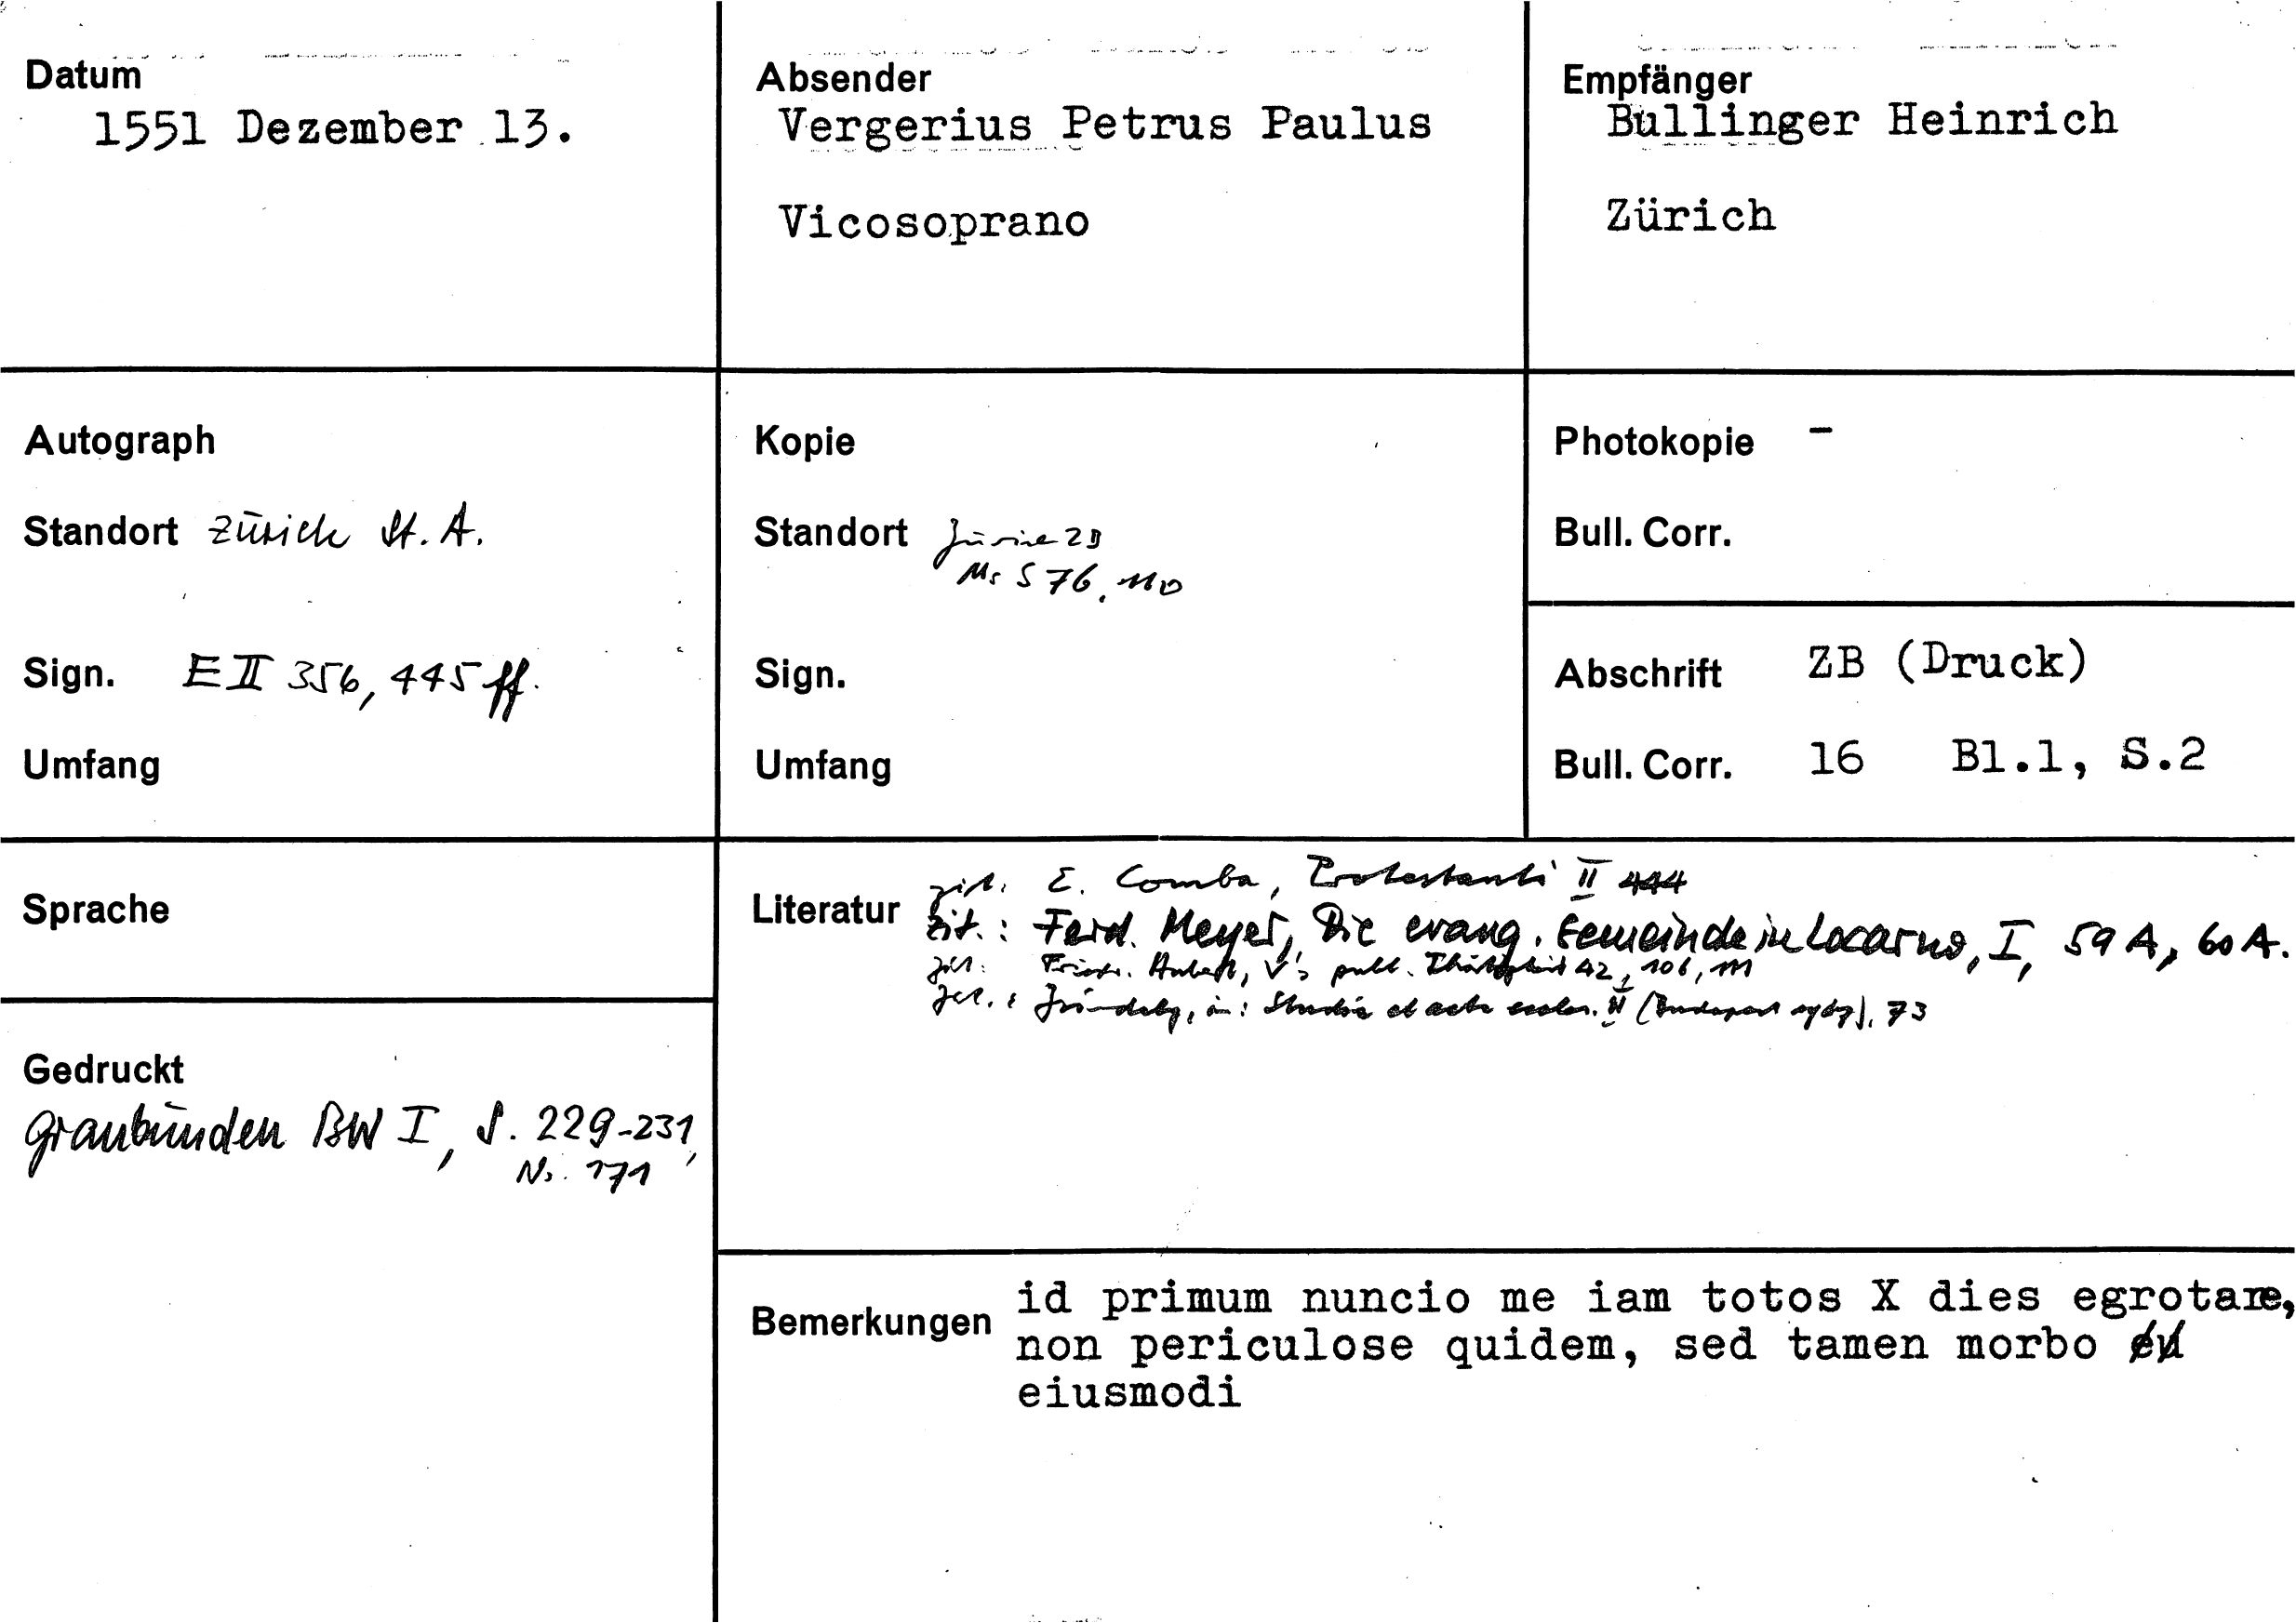 Datum
1551 Dezember 13.
Absender
Vergerius Petrus Paulus
Vicosoprano
Empfänger
Bullinger Heinrich
Zürich
Autograph
Standort Zürich St. A.
Sign. E II 356, 445 ff.
Umfang
Kopie
Standort Zürich ZB
Ms S 76, 110
Sign.
Umfang
Photokopie -
Bull. Corr.
Abschrift ZB (Druck)
Bull. Corr. 16 Bl.1, S.2
Sprache
Gedruckt
Graubünden BW I, S. 229-231,
Nr. 171
Literatur zit. E. Comba, Protestanti II 444
zit.: Ferd. Meyer, Die evang. Gemeinde in Locarno, I, 59 A, 60 A.
zit. Friedr. Hubert, V's publ. Thätigkeit 42, 106, 111
zit.: in: Studia et acta eccles. II (Budapest 1967), 73
Bemerkungen id primum nuncio me iam totos X dies egrotare,
non periculose quidem, sed tamen morbo
eiusmodi